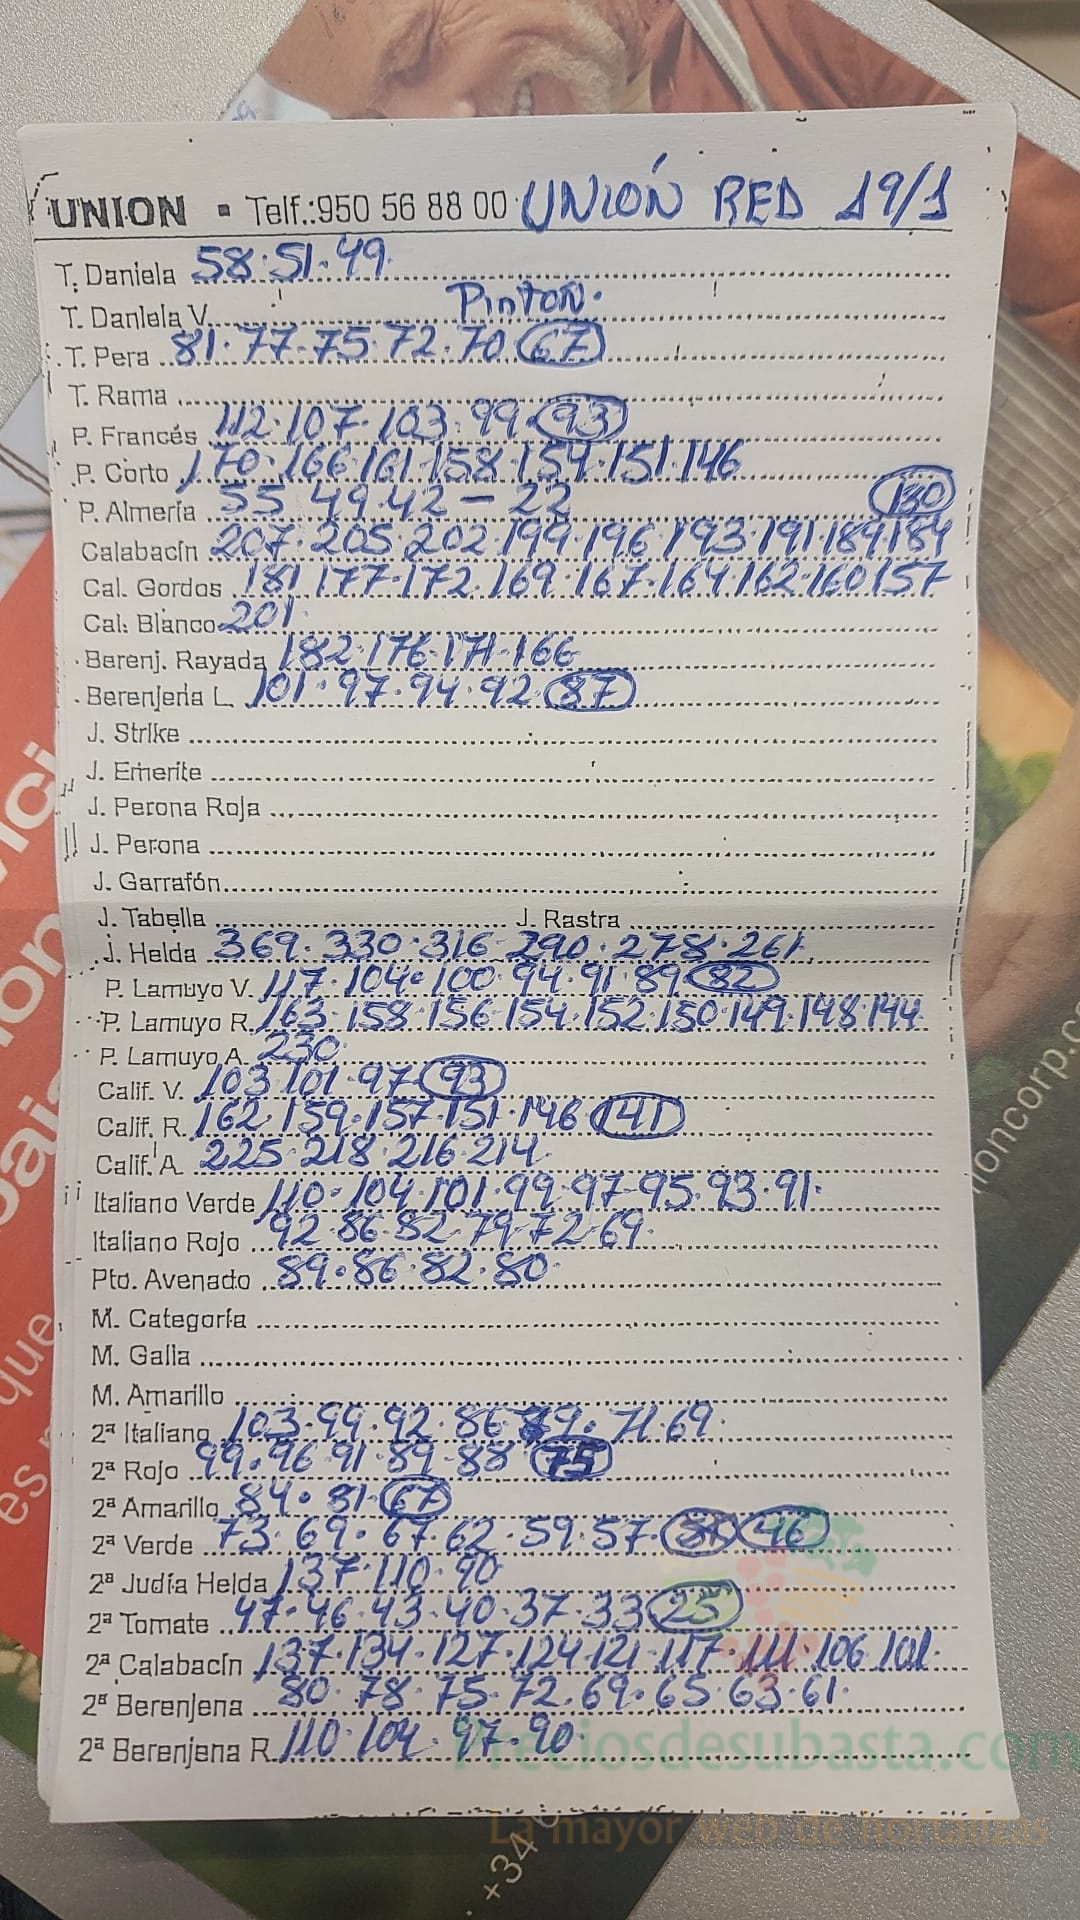 UNION ▪ Telf.:950 56 88 00 UNIÓN RED 19/1
T. Daniela 58·51·49
T. Daniela V. Pinton.
T. Pera 81·77·75·72·70 67
T. Rama
P. Francés 112·107·103·99 93
P. Corto 170·166·161·158·154·151·146
P. Almería 55 49·42 - 22 130
Calabacín 207·205·202·199·196·193·191·189·184
Cal. Gordos 181 177·172·169·167·164·162·160 157
Cal. Blanco 201
Berenj. Rayada 182·176·171·166
Berenjena L. 101·97·94·92 87
J. Strike
J. Emerite
J. Perona Roja
J. Perona
J. Garrafón
J. Tabella J. Rastra
J. Helda 369·330·316·290·278·261
P. Lamuyo V. 117·104·100·94·91·89 82
P. Lamuyo R. 163·158·156·154·152·150·149·148·144
P. Lamuyo A. 230
Calif. V. 103·101·97 93
Calif. R. 162·159·157·151·146 141
Calif. A. 225·218·216·214
Italiano Verde 110·104·101·99·97·95·93·91
Italiano Rojo 92·86·82·79·72·69
Pto. Avenado 89·86·82·80
M. Categoría
M. Galia
M. Amarillo
2ª Italiano 103·99·92·86 79·71·69
2ª Rojo 99·96·91·89·88 75
2ª Amarillo 84·81 67
2ª Verde 73·69·67·62·59·57 46
2ª Judía Helda 137·110·90
2ª Tomate 47·46·43·40·37·33 25
2ª Calabacín 137·134·127·124·121·117·111·106 101
2ª Berenjena 80·78·75·72·69·65·63·61
2ª Berenjena R. 110·104·97·90
Preciosdesubasta.com
La mayor web de hortalizas
ioncorp.c
que
es
+34